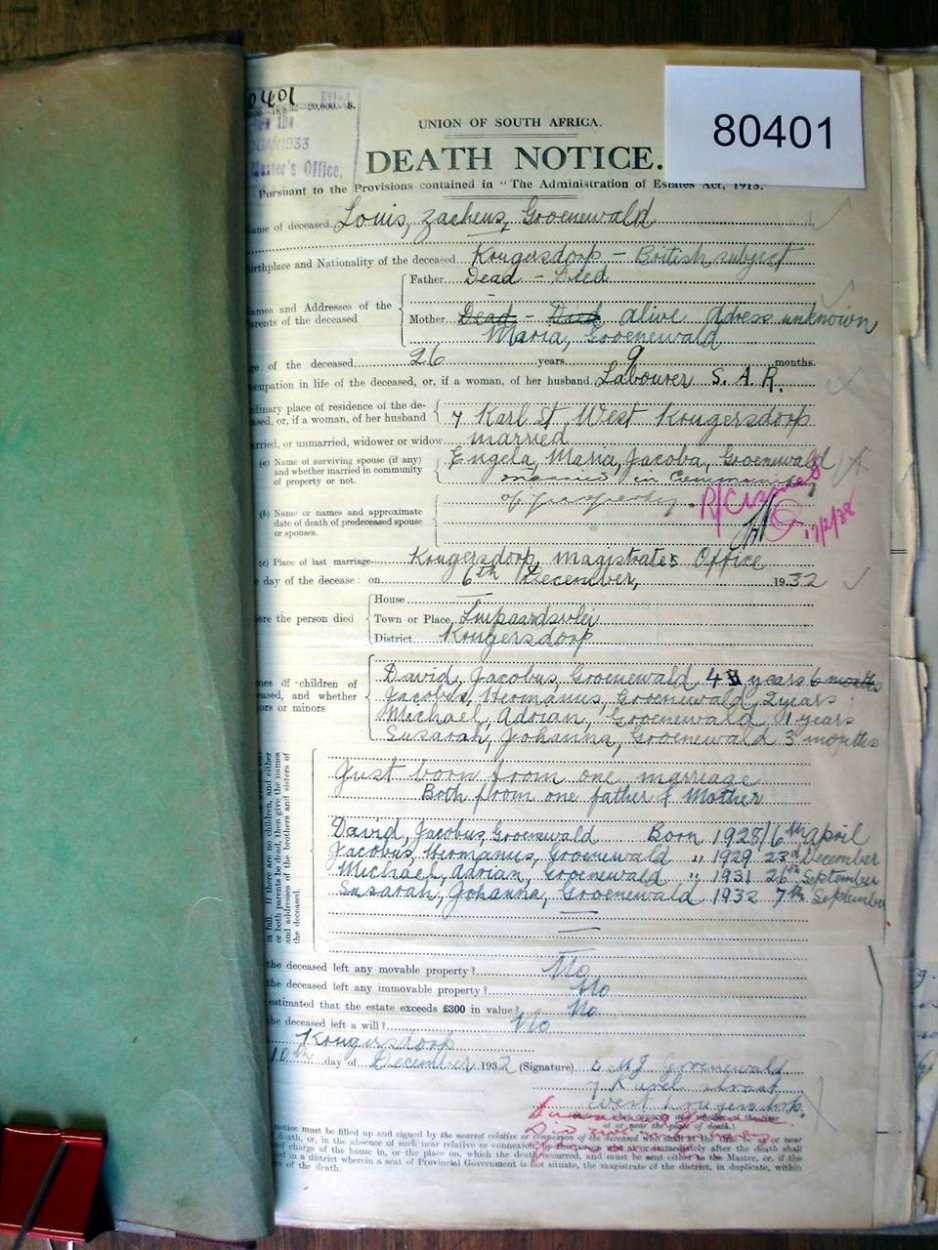 0401
80401
20,000. S.
JAN 1933
Master's Office,
UNION OF SOUTH AFRICA.
DEATH NOTICE.
Pursuant to the Provisions contained in "The Administration of Estates Act, 1913."
ame of deceased Louis, Zacheus, Groenewald
Birthplace and Nationality of the deceased Krugersdorp - British subject
ames and Addresses of the
arents of the deceased
Father Dead - Died
Mother Dead - Died alive Adress unknown
Maria, Groenewald
ge of the deceased 26 years 9 months.
ccupation in life of the deceased, or, if a woman, of her husband Labourer S. A. R.
dinary place of residence of the de-
ased, or, if a woman, of her husband
7 Karl St West Krugersdorp
arried, or unmarried, widower or widow married
(a) Name of surviving spouse (if any)
and whether married in community
of property or not.
Engela, Maria, Jacoba, Groenewald
married in Community
of property
(b) Name or names and approximate
date of death of predeceased spouse
or spouses.
17/2/38
(c) Place of last marriage Krugersdorp, Magistrates Office
e day of the decease : on 6th December, 1932
ere the person died
House
Town or Place, Luipaardsvlei
District Krugersdorp
mes of children of
eased, and whether
ors or minors
David, Jacobus, Groenewald 4 years 6 months
Jacobus, Hermanus, Groenewald, 2 years
Michael, Adrian, Groenewald 1 years
Susarah, Johanna, Groenewald 3 months
in full. If there are no children, and either
or both parents be dead, then give the names
and addresses of the brothers and sisters of
the deceased.
Just born from one marriage
Both from one father & Mother
David, Jacobus, Groenewald Born 1928/6th April
Jacobus, Hermanus, Groenewald " 1929 23rd December
Michael, Adrian, Groenewald " 1931 26th September
Susarah, Johanna, Groenewald 1932 7th September
the deceased left any movable property? No
the deceased left any immovable property? No
estimated that the estate exceeds £300 in value? No
the deceased left a will? No
Krugersdorp
10th day of December 1932 (Signature) E M J Groenewald
7 Karel straat
West Krugersdorp
at or near the place of death.)
notice must be filled up and signed by the nearest relative or connexion of the deceased who shall at the time be at or near
death, or, in the absence of such near relative or connexion, by the person who at or immediately after the death shall
charge of the house in, or the place on, which the death occurred, and must be sent either to the Master, or, if the
ed in a district wherein a seat of Provincial Government is not situate, the magistrate of the district, in duplicate, within
s of the death.